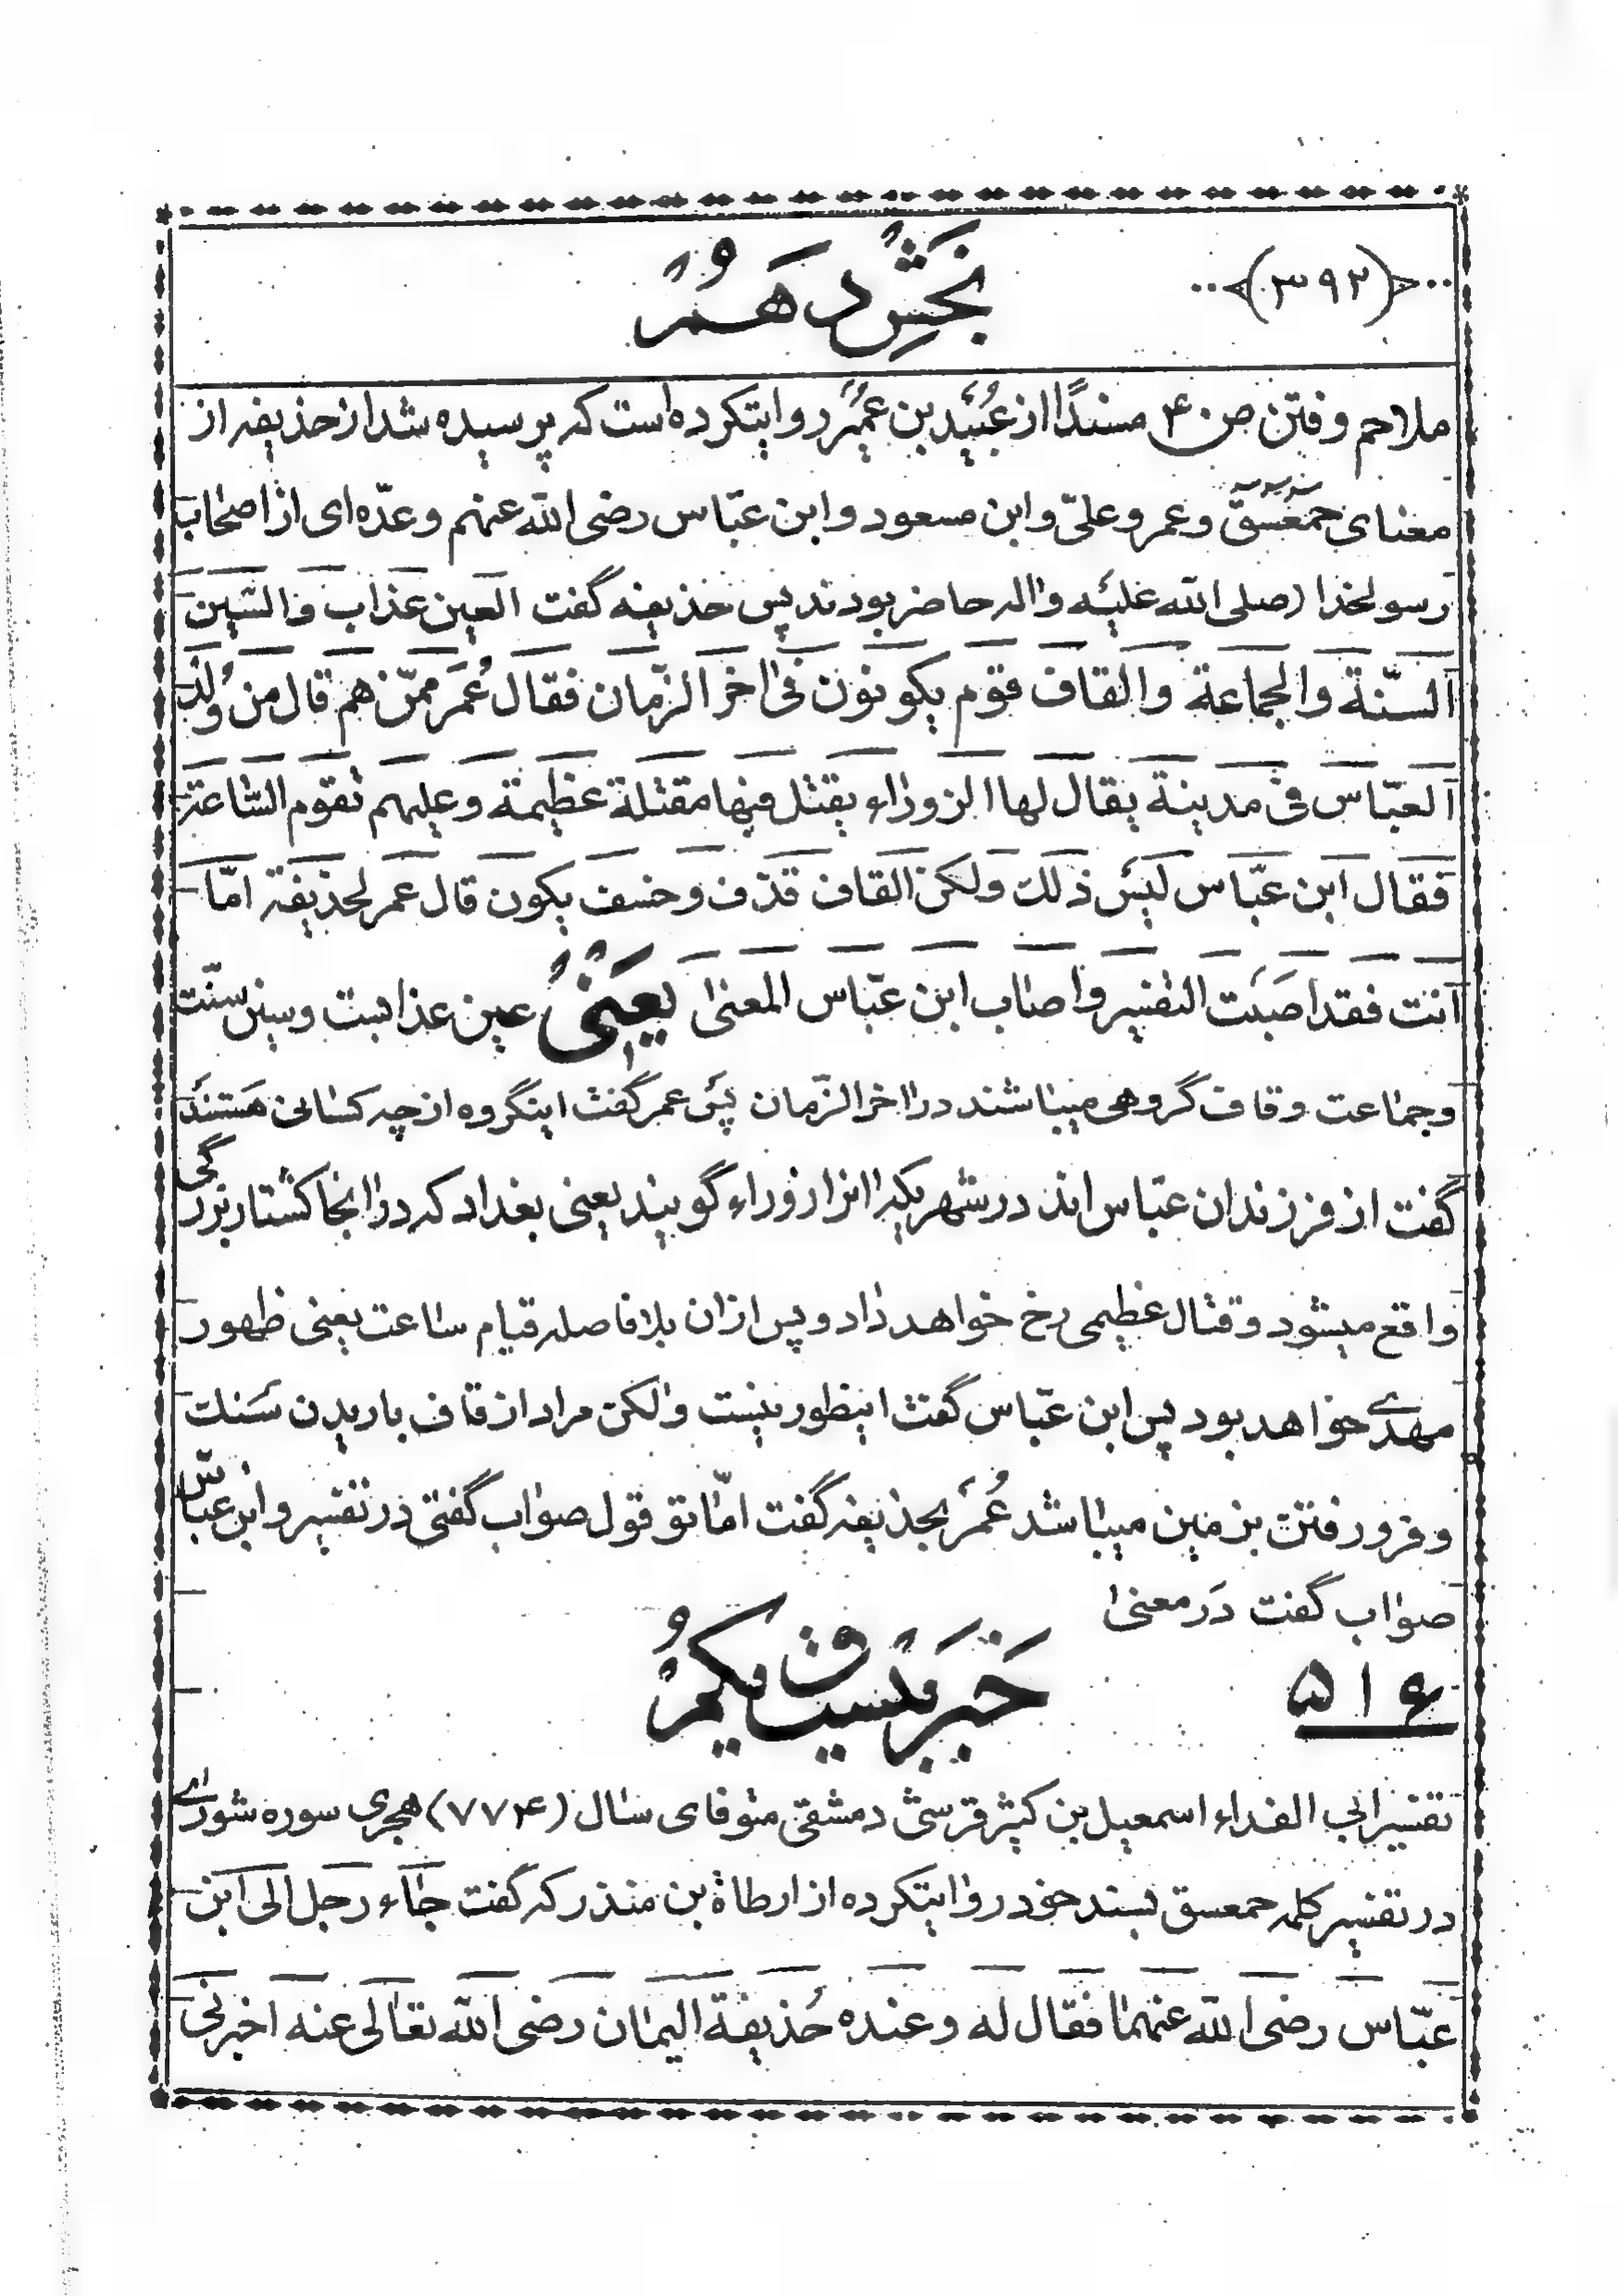 (۳۹۲)
بخش دهم
ملاحم و فتن ص ۴۰ مسندًا از عُبَید بن عمیر روایتکرده است که پرسیده شد از حذیفه از
معنای حمعسق و عمر و علیّ و ابن مسعود و ابن عبّاس رضی الله عنهم و عدّه‌ای از اصحاب
رسولخدا (صلی الله علیه و اله حاضر بودند پس حذیفه گفت العین عذاب والسّین
السّنة والجماعة والقاف قوم یکونون فی اخر الزّمان فقال عُمَر ممّن هم قال من وُلد
العبّاس فی مدینة یقال لها الزوراء یقتل فیها مقتلة عظیمة و علیهم تقوم السّاعة
فقال ابن عبّاس لیس ذلك ولکن القاف قذف وخسف یکون قال عمر لحذیفة امّا
انت فقد اصبت التفسیر واصاب ابن عبّاس المعنی یعنی عین عذابست و سین سنّت
و جماعت و قاف گروهی میباشند در اخر الزّمان پس عمر گفت اینگروه از چه کسانی هستند
گفت از فرزندان عبّاس‌اند در شهریکه انرا زوراء گویند یعنی بغداد که در انجا کشتار بزرگی
واقع میشود و قتال عظیمی رخ خواهد داد و پس از ان بلافاصله قیام ساعت یعنی ظهور
مهدی خواهد بود پس ابن عبّاس گفت اینطور نیست ولکن مراد از قاف باریدن سنك
و فرو رفتن بزمین میباشد عُمَر بحذیفه گفت امّا تو قول صواب گفتی در تفسیر و ابن عبّاس
صواب گفت در معنی
۵۱۶
خبر بیست و یکم
تفسیر ابی الفداء اسمعیل بن کثیر قرسیّ دمشقی متوفای سال (۷۷۴) هجری سوره شوری
در تفسیر کلمه حمعسق بسند خود روایتکرده از ارطاة بن منذر که گفت جاء رجل الی ابن
عبّاس رضی الله عنهما فقال له و عنده حُذیفة الیمان رضی الله تعالی عنه اخبرنی